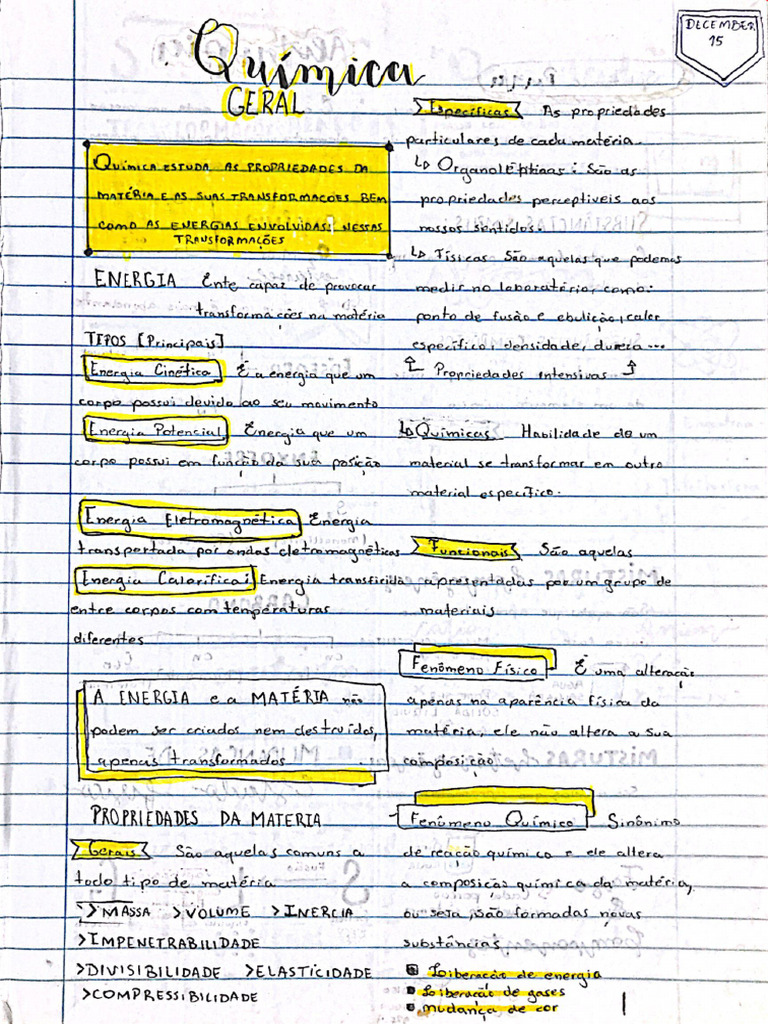 Química
GERAL
DECEMBER
15
QUÍMICA ESTUDA AS PROPRIEDADES DA
MATÉRIA E AS SUAS TRANSFORMAÇOES BEM
COMO AS ENERGIAS ENVOLVIDAS NESSAS
TRANSFORMAÇÕES
ENERGIA Ente capaz de provocar
transformações na matéria
TIPOS [Principais]
Energia Cinética É a energia que um
corpo possui devido ao seu movimento
Energia Potencial Energia que um
corpo possui em função da sua posição
Energia Eletromagnética Energia
transportada por ondas eletromagnéticas
Energia Calorífica: Energia transferida
entre corpos com temperaturas
diferentes
A ENERGIA e a MATÉRIA não
podem ser criados nem destruídos,
apenas transformados
PROPRIEDADES DA MATERIA
Gerais São aquelas comuns a
todo tipo de matéria
>MASSA >VOLUME >INERCIA
>IMPENETRABILIDADE
>DIVISIBILIDADE >ELASTICIDADE
>COMPRESSIBILIDADE
Específicas As propriedades
particulares de cada matéria.
↳ Organolépticas: São as
propriedades perceptiveis aos
nossos sentidos.
↳ Físicas São aquelas que podemos
medir no laboratório, como:
ponto de fusão e ebulição, calor
específico, densidade, dureza...
Propriedades intensivas
↳ Químicas Habilidade de um
material se transformar em outro
material específico.
Funcionais São aquelas
apresentadas por um grupo de
materiais
Fenômeno Físico É uma alteração
apenas na aparência física da
matéria, ele não altera a sua
composição
Fenômeno Químico Sinônimo
de reação químico e ele altera
a composição química da matéria,
ou seja, são formadas novas
substâncias
Liberação de energia
Liberação de gases
mudança de cor